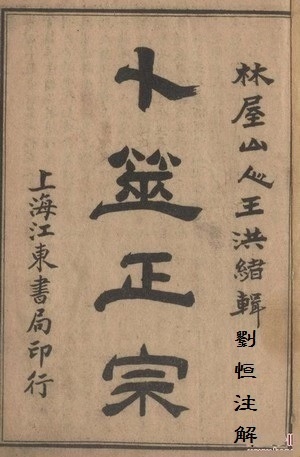 林屋山人王洪緒輯
劉恒注解
卜筮正宗
上海江東書局印行